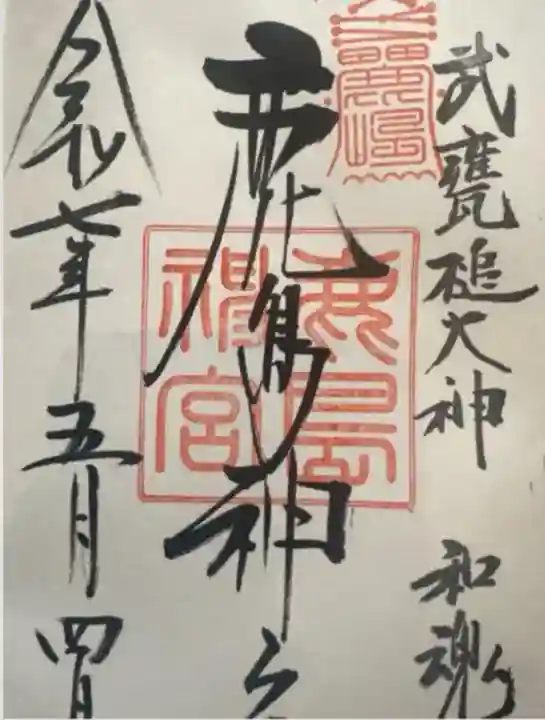 武甕槌大神
和魂
鹿島神宮
鹿島
鹿島神宮
令和七年五月四日